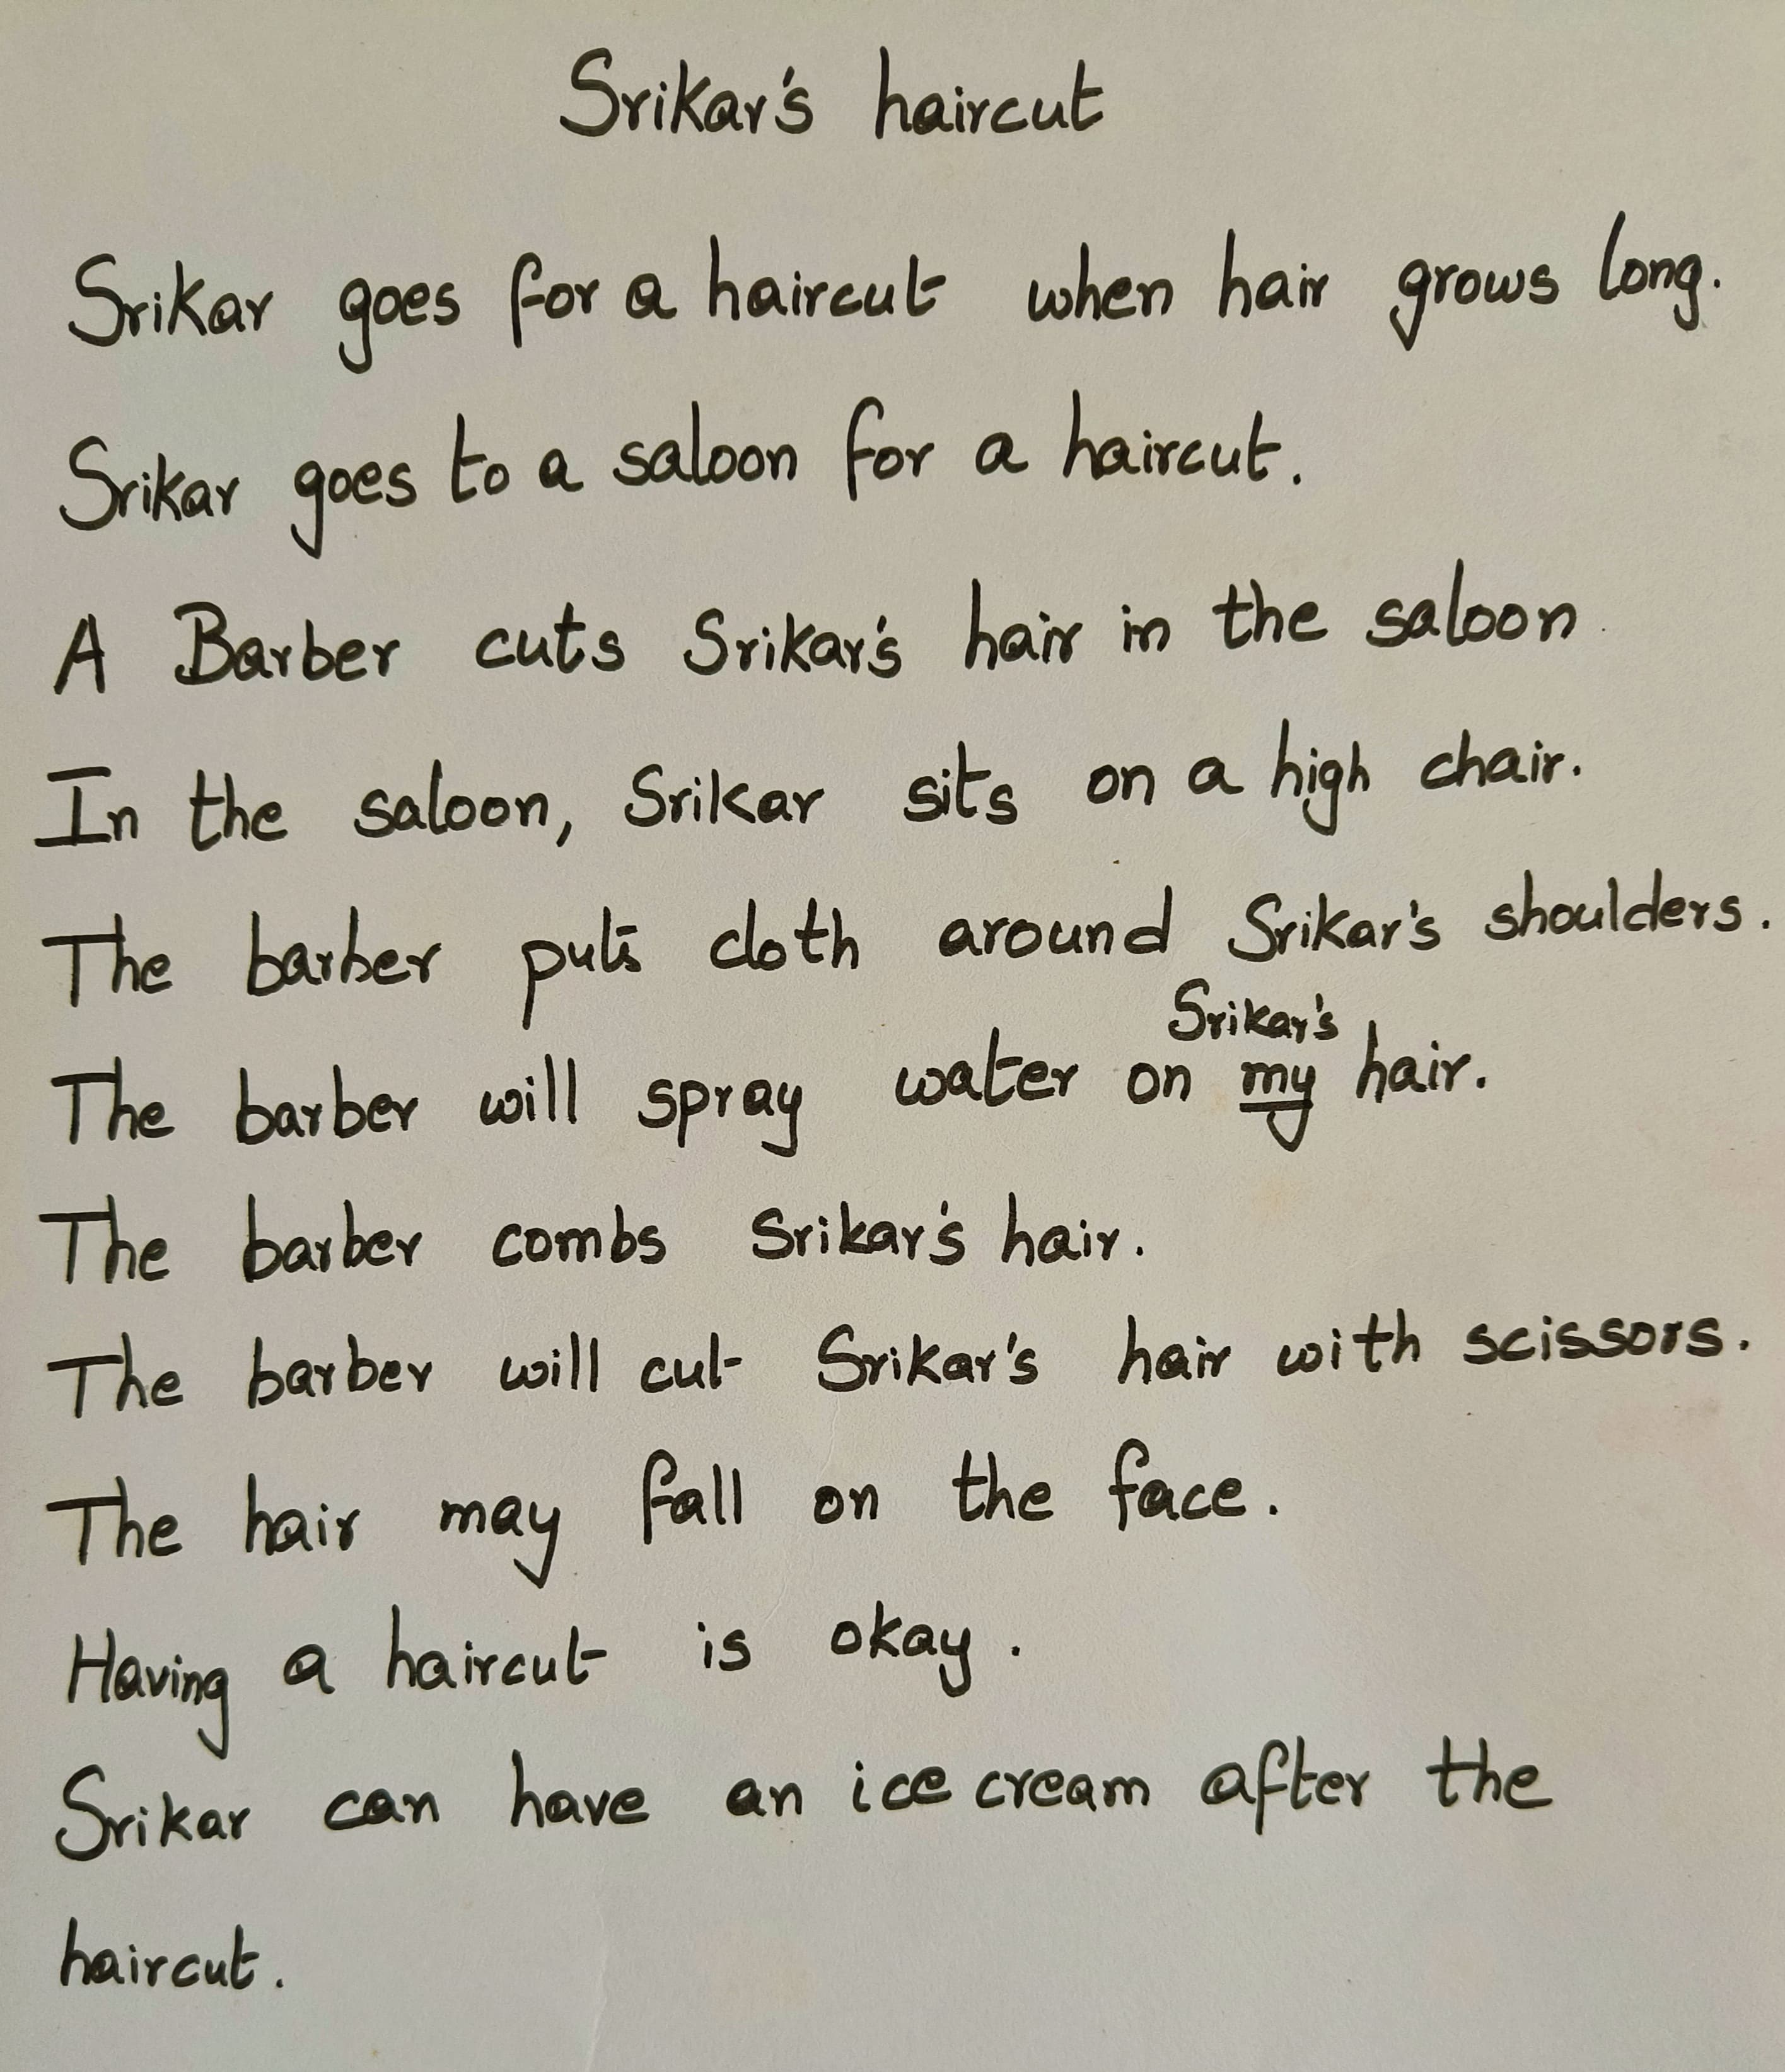 Srikar's haircut
Srikar goes for a haircut when hair grows long.
Srikar goes to a saloon for a haircut.
A Barber cuts Srikar's hair in the saloon.
In the saloon, Srikar sits on a high chair.
The barber puts cloth around Srikar's shoulders.
Srikar's
The barber will spray water on my hair.
The barber combs Srikar's hair.
The barber will cut Srikar's hair with scissors.
The hair may fall on the face.
Having a haircut is okay.
Srikar can have an ice cream after the
haircut.